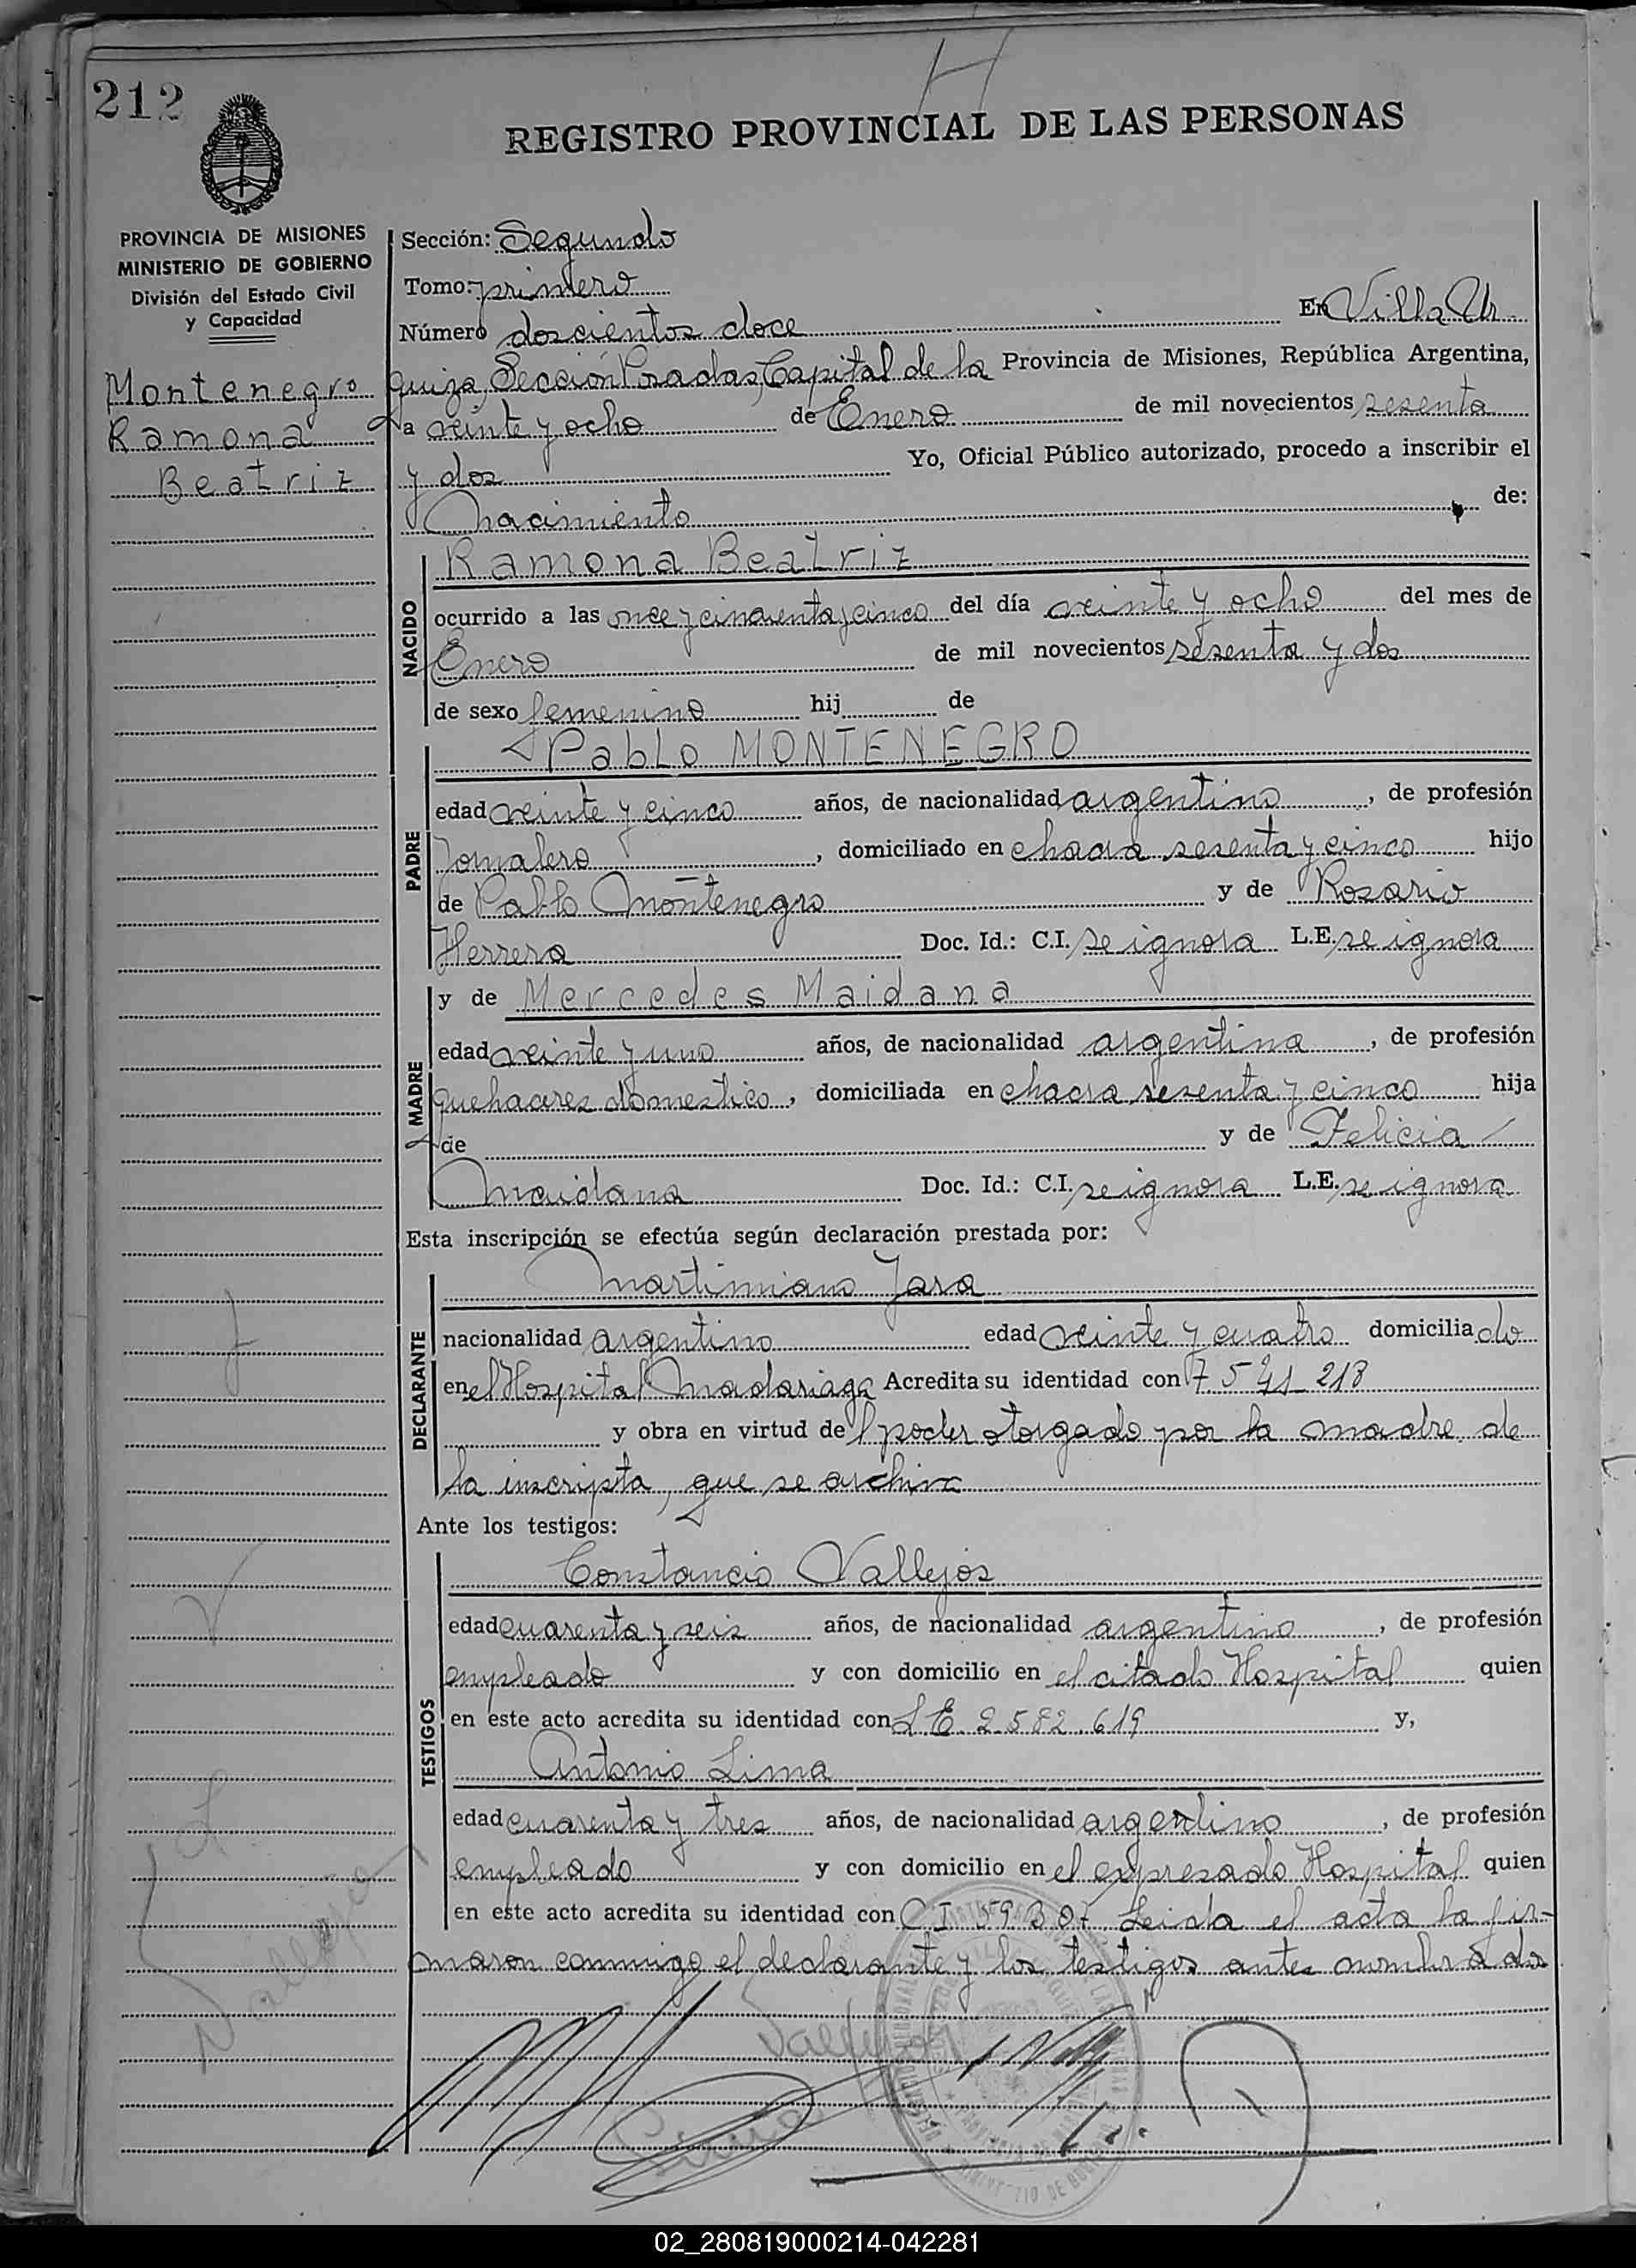 212
H
REGISTRO PROVINCIAL DE LAS PERSONAS
PROVINCIA DE MISIONES
MINISTERIO DE GOBIERNO
División del Estado Civil
y Capacidad
Montenegro
Ramona
Beatriz
Sección: Segundo
Tomo: primero
Número doscientos doce En Villa Ur
quiza, Sección Posadas, Capital de la Provincia de Misiones, República Argentina,
a veinte y ocho de Enero de mil novecientos sesenta
y dos Yo, Oficial Público autorizado, procedo a inscribir el
Nacimiento de:
NACIDO
Ramona Beatriz
ocurrido a las once y cincuenta y cinco del día veinte y ocho del mes de
Enero de mil novecientos sesenta y dos
de sexo femenino hij de
PADRE
Pablo MONTENEGRO
edad veinte y cinco años, de nacionalidad argentino, de profesión
Jornalero, domiciliado en chacra sesenta y cinco hijo
de Pablo Montenegro y de Rosario
Herrera Doc. Id.: C.I. se ignora L.E. se ignora
MADRE
y de Mercedes Maidana
edad veinte y uno años, de nacionalidad argentina, de profesión
quehaceres domestico, domiciliada en chacra sesenta y cinco hija
de y de Felicia
Maidana Doc. Id.: C.I. se ignora L.E. se ignora
Esta inscripción se efectúa según declaración prestada por:
DECLARANTE
Martimiano Jara
nacionalidad argentino edad veinte y cuatro domiciliado
en el Hospital Madariaga Acredita su identidad con 7.541.218
y obra en virtud del poder otorgado por la madre de
la inscripta, que se archiva
Ante los testigos:
TESTIGOS
Constancio Vallejos
edad cuarenta y seis años, de nacionalidad argentino, de profesión
empleado y con domicilio en el citado Hospital quien
en este acto acredita su identidad con L E. 2.582.619 y,
Antonio Lima
edad cuarenta y tres años, de nacionalidad argentino, de profesión
empleado y con domicilio en el expresado Hospital quien
en este acto acredita su identidad con C I 59307 Leida el acta la fir-
maron conmigo el declarante y los testigos antes nombrados
Vallejos
02_280819000214-042281